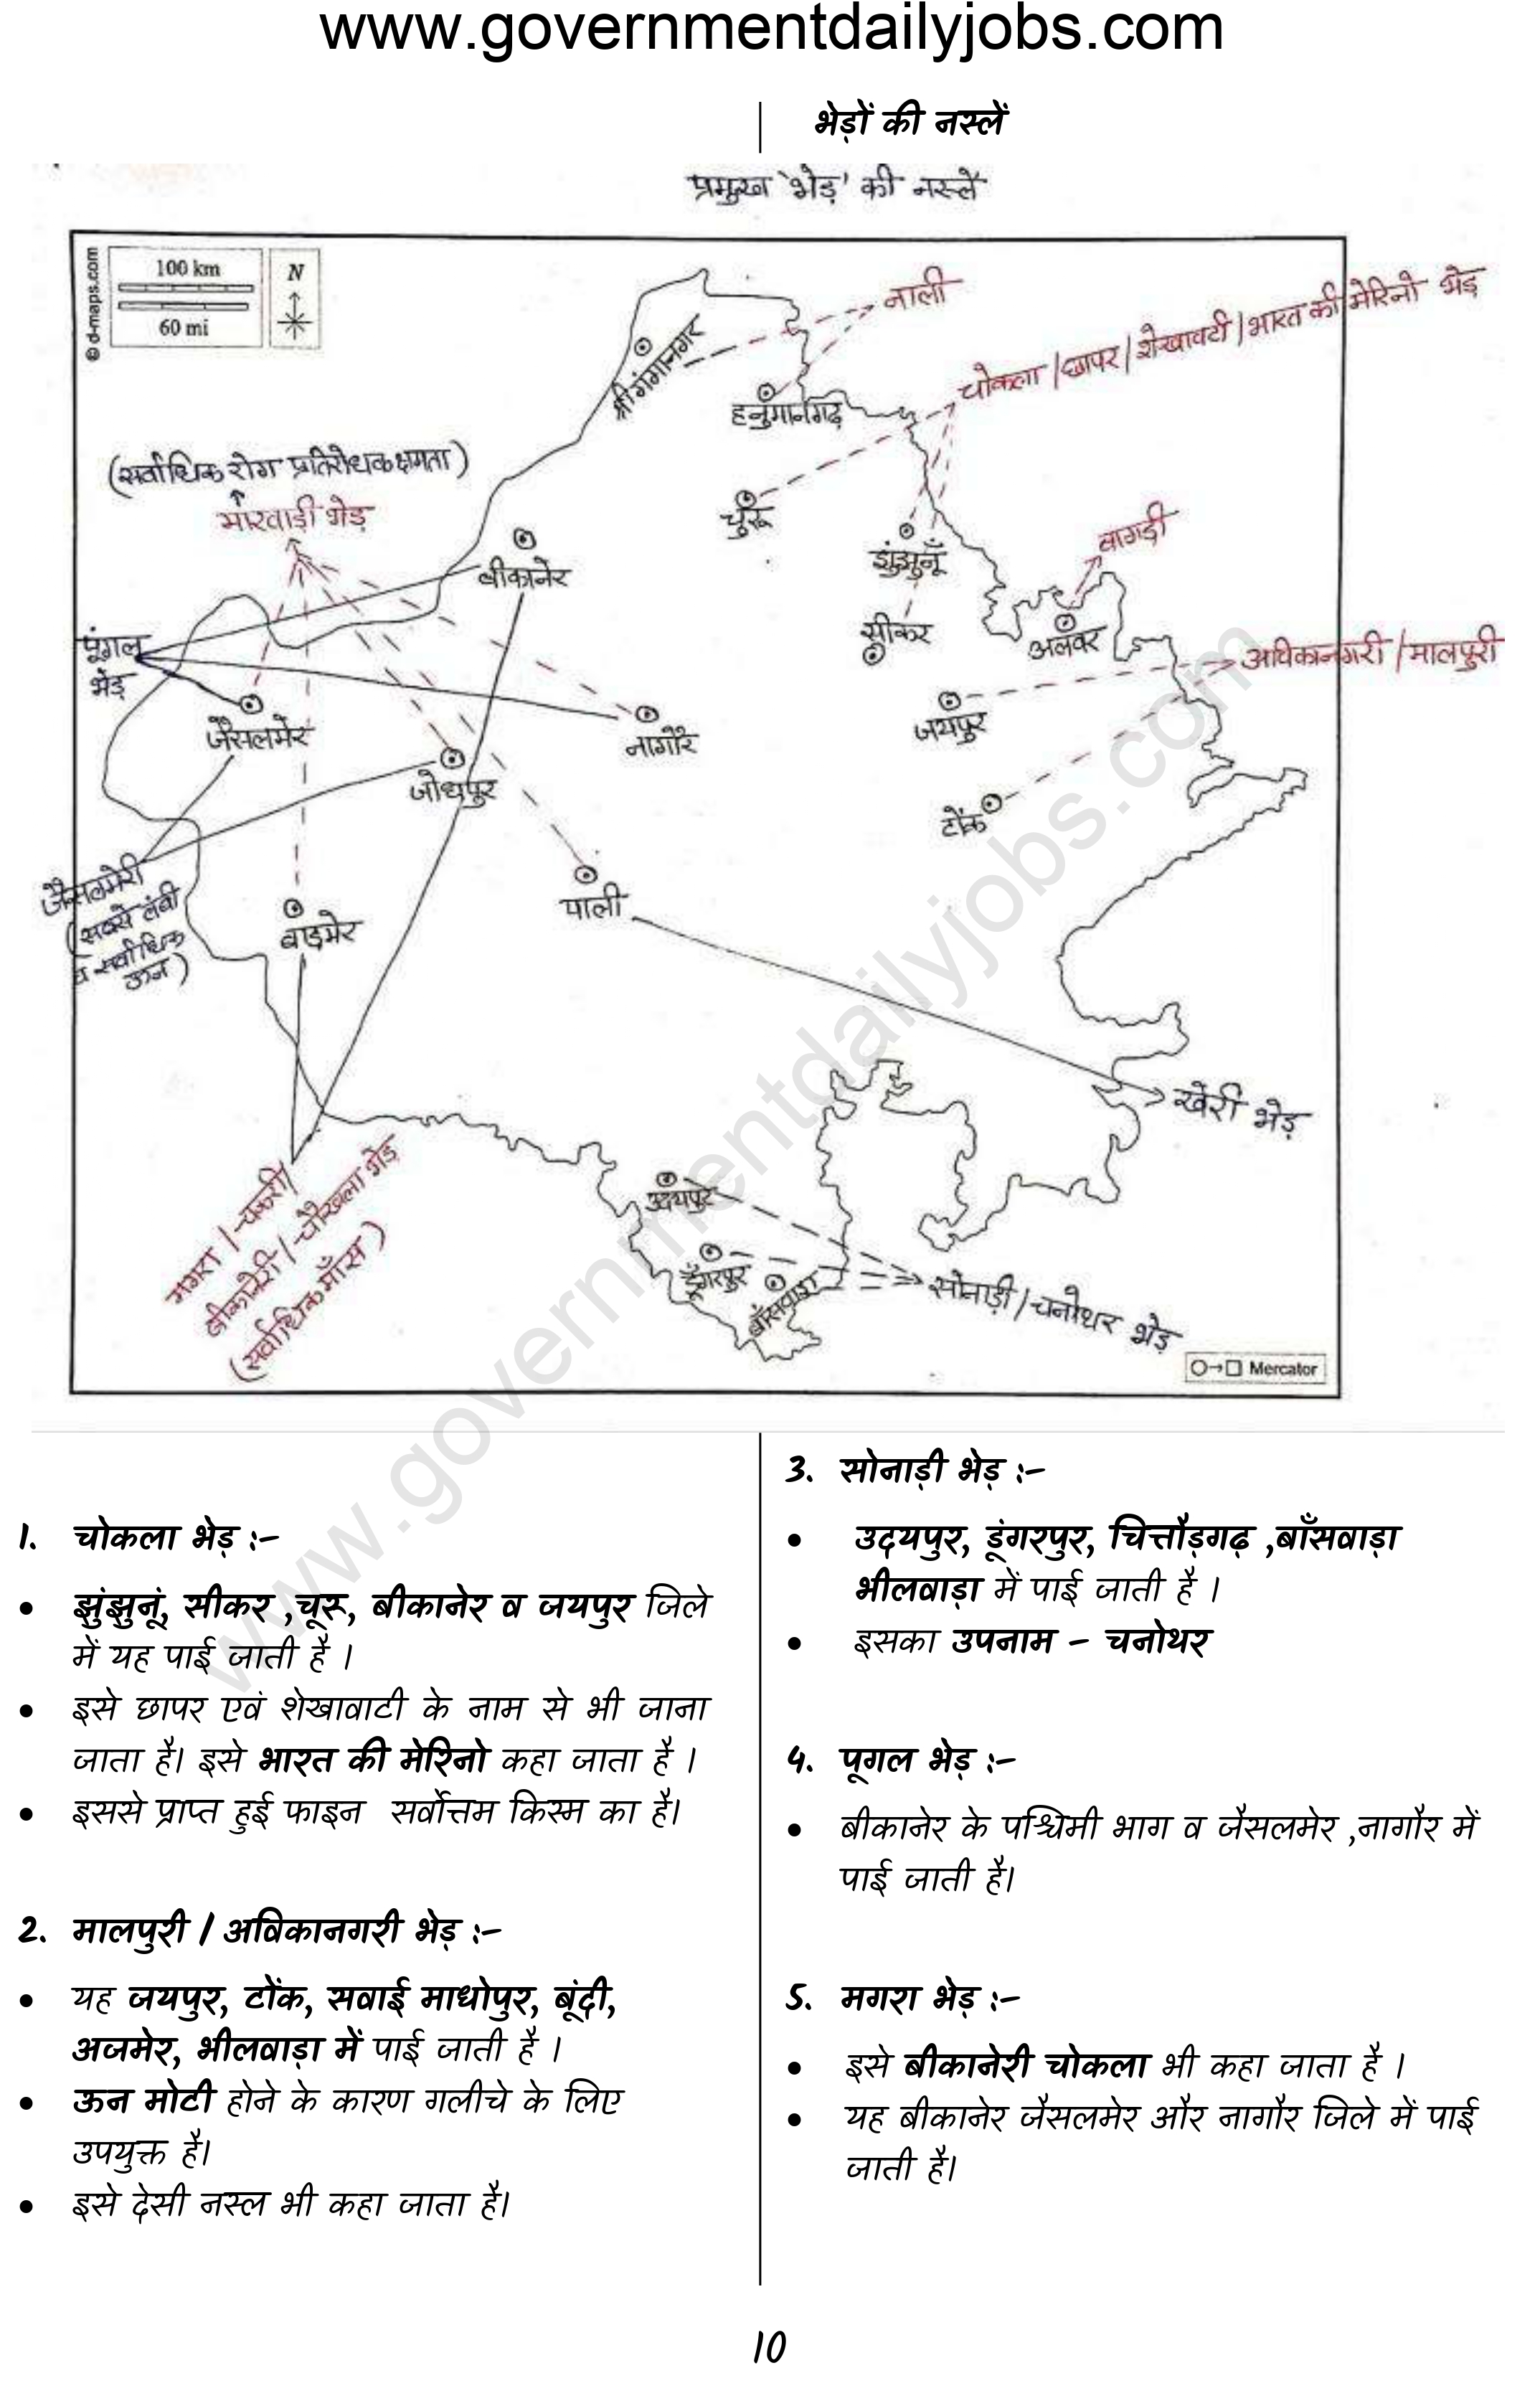 www.governmentdailyjobs.com
भेड़ों की नस्लें
प्रमुख 'भेड़' की नस्लें
© d-maps.com
100 km
60 mi
N
नाली
चोकला / छापर / शेखावटी / भारत की मेरिनो भेड़
श्रीगंगानगर
हनुमानगढ़
(सर्वाधिक रोग प्रतिरोधक क्षमता)
मारवाड़ी भेड़
चुरू
बागड़ी
बीकानेर
झुंझुनूँ
सीकर
अलवर
पूंगल
भेड़
अविकानगरी / मालपुरी
जैसलमेर
नागौर
जयपुर
जोधपुर
टोंक
जैसलमेरी
(सबसे लंबी
व सर्वाधिक
ऊन)
पाली
बाड़मेर
खेरी भेड़
मगरा / चकरी /
बीकानेरी / चौखला भेड़
(सर्वाधिक माँस)
उदयपुर
डूँगरपुर
बाँसवाडा
सोनाड़ी / चनोथर भेड़
Mercator
www.governmentdailyjobs.com
1. चोकला भेड़ :-
• झुंझुनूं, सीकर ,चूरू, बीकानेर व जयपुर जिले
में यह पाई जाती है ।
• इसे छापर एवं शेखावाटी के नाम से भी जाना
जाता है। इसे भारत की मेरिनो कहा जाता है ।
• इससे प्राप्त हुई फाइन सर्वोत्तम किस्म का है।
2. मालपुरी / अविकानगरी भेड़ :-
• यह जयपुर, टोंक, सवाई माधोपुर, बूंदी,
अजमेर, भीलवाड़ा में पाई जाती है ।
• ऊन मोटी होने के कारण गलीचे के लिए
उपयुक्त है।
• इसे देसी नस्ल भी कहा जाता है।
3. सोनाड़ी भेड़ :-
• उदयपुर, डूंगरपुर, चित्तौड़गढ़ ,बाँसवाड़ा
भीलवाड़ा में पाई जाती है ।
• इसका उपनाम - चनोथर
4. पूगल भेड़ :-
• बीकानेर के पश्चिमी भाग व जैसलमेर ,नागौर में
पाई जाती है।
5. मगरा भेड़ :-
• इसे बीकानेरी चोकला भी कहा जाता है ।
• यह बीकानेर जैसलमेर और नागौर जिले में पाई
जाती है।
10